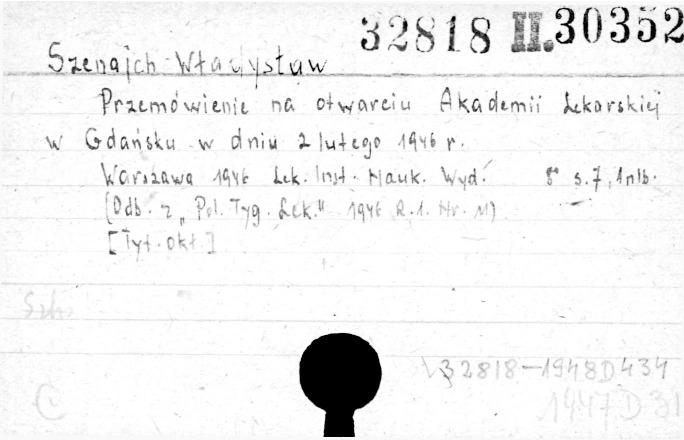 32818 II.30352
Szenajch Władysław
Przemówienie na otwarciu Akademii Lekarskiej
w Gdańsku w dniu 2 lutego 1946 r.
Warszawa 1946 Lek. Inst. Nauk. Wyd. 8° s. 7, 1 nlb.
(Odb. z „Pol. Tyg. Lek." 1946 R. 1. Nr. 11)
[Tyt. okł.]
32818-1948D434
1947D31
C